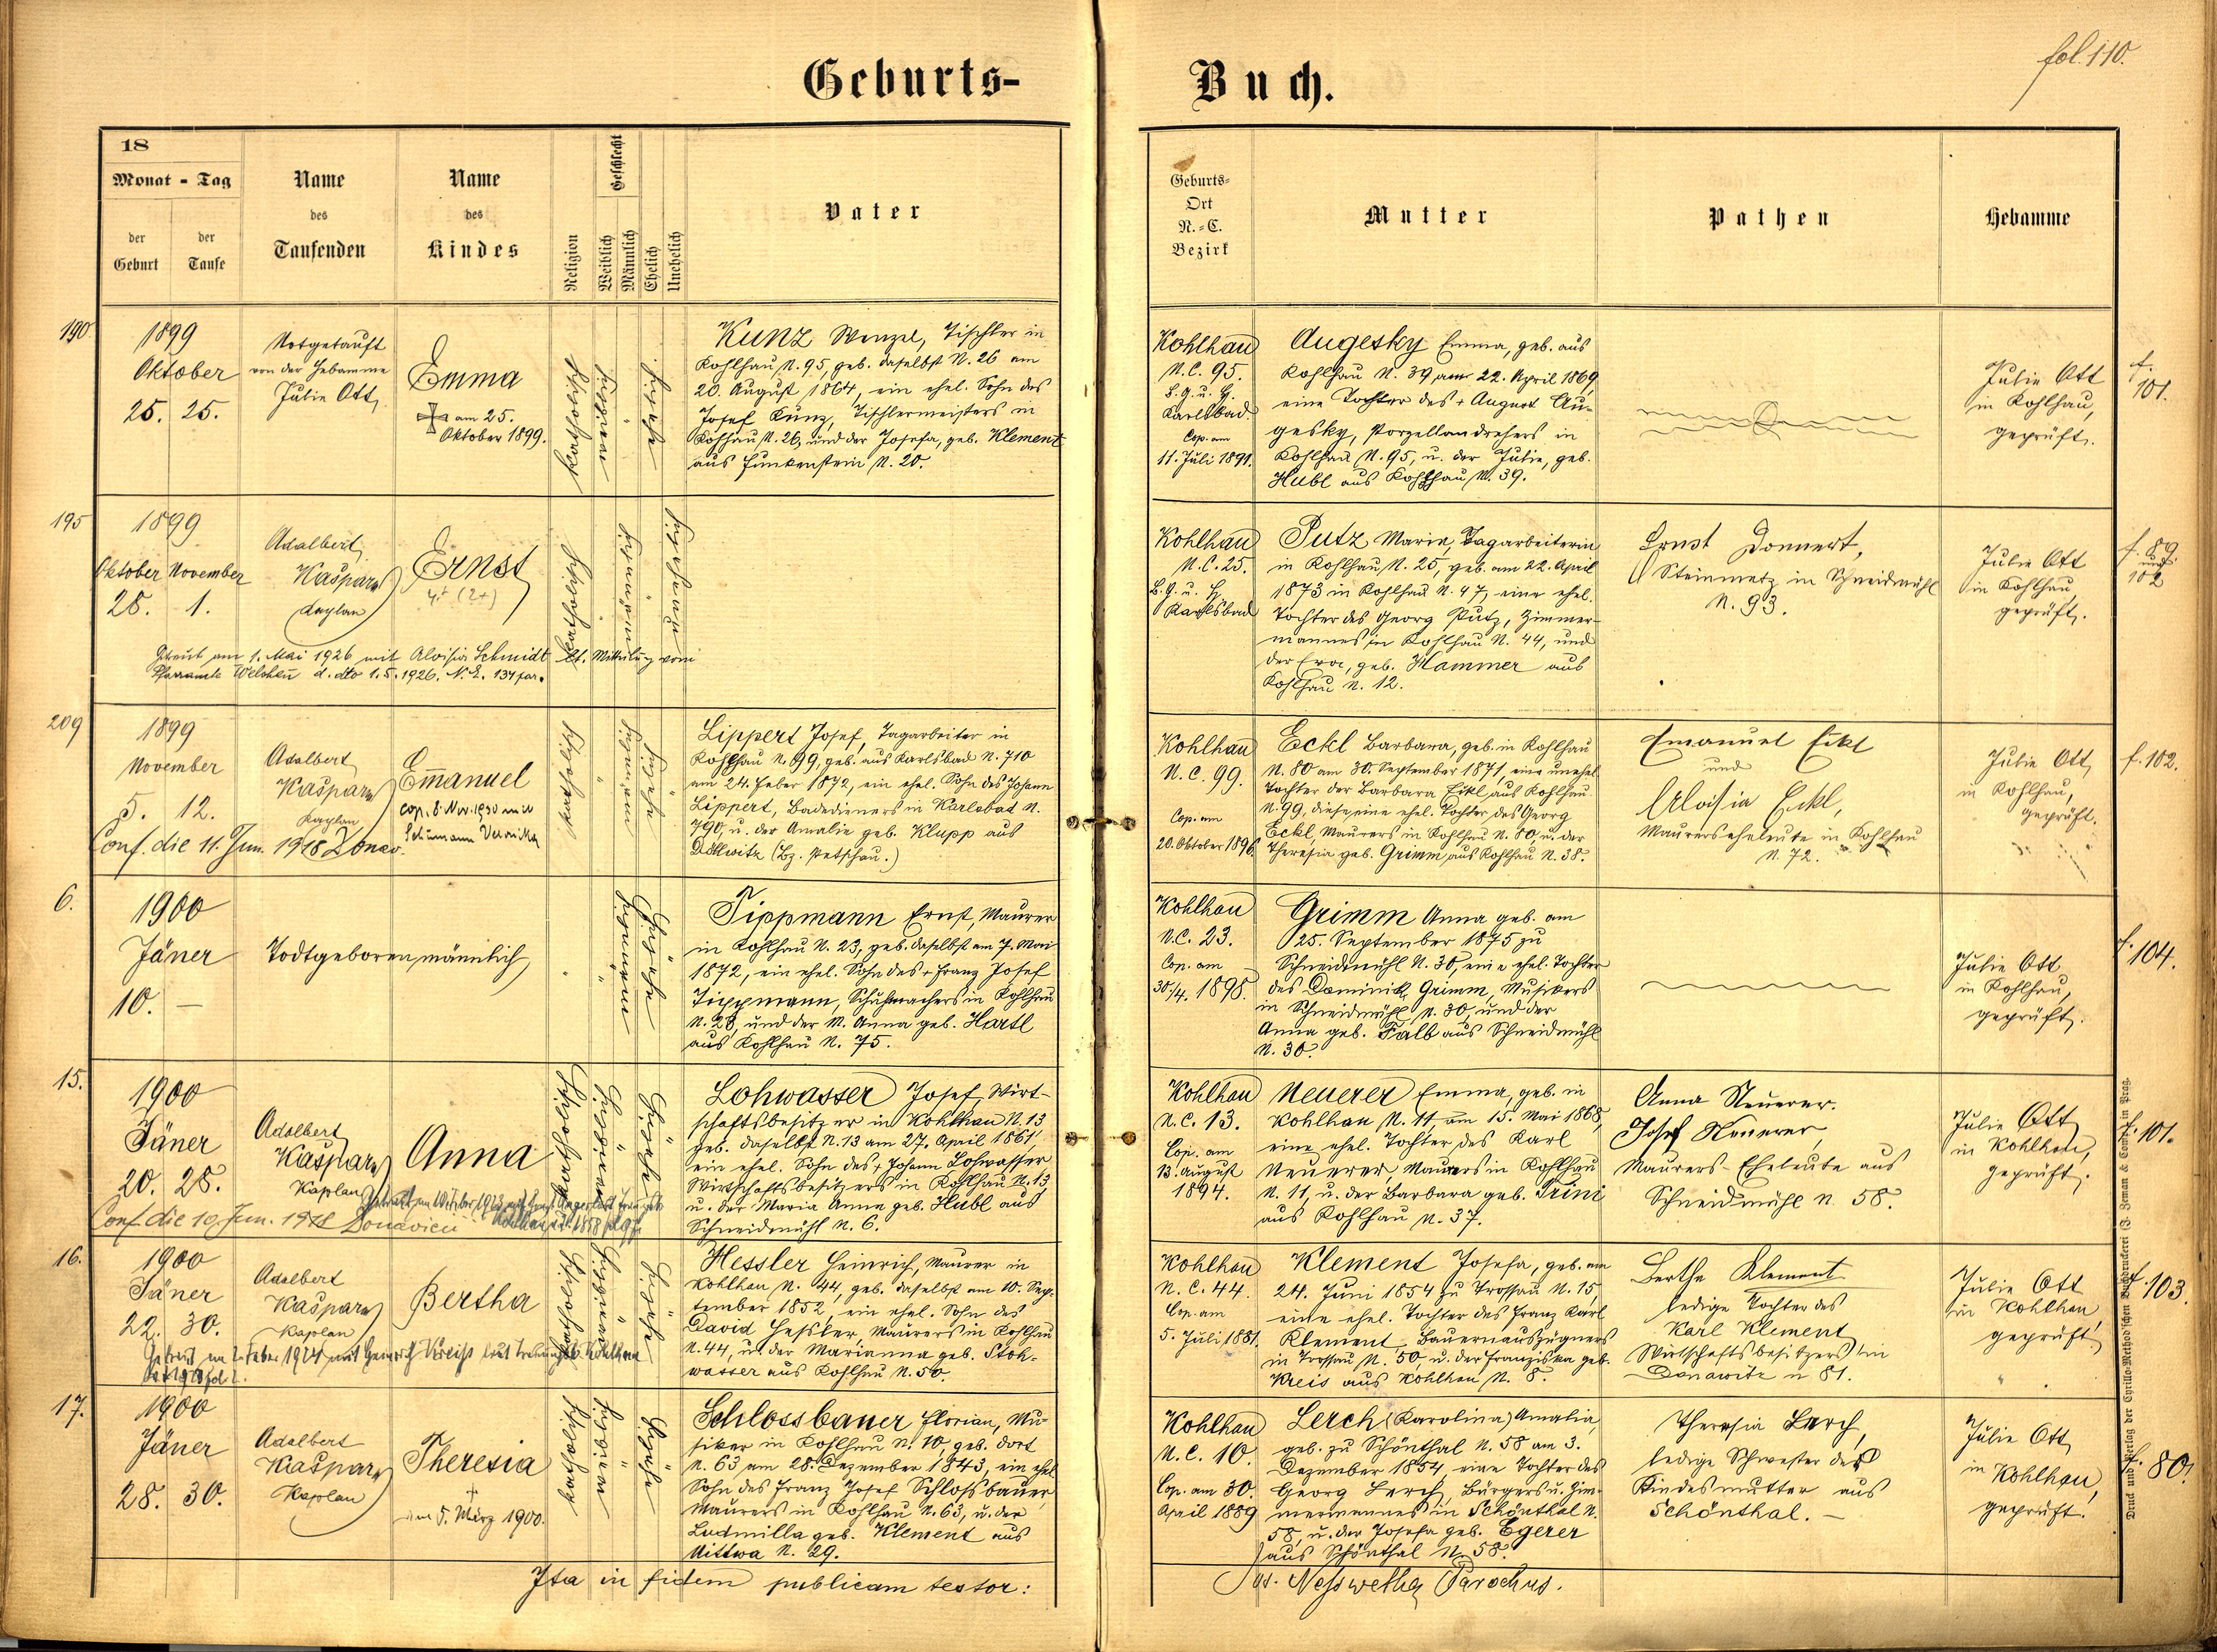 fol. 110.
Geburts-
Buch.
18
Monat - Tag
der Geburt
der Taufe
Name des Taufenden
Name des Kindes
Religion
Geschlecht
Weiblich
Männlich
Ehelich
Unehelich
Vater
Geburts-
Ort
N.-C.
Bezirk
Mutter
Pathen
Hebamme
190.
1899
Oktober
25. 25.
Notgetauft
von der Hebamme
Julie Ott
Emma
am 25.
Oktober 1899.
katholisch
Kunz Wenzel, Tischler in
Kohlhau N. 95, geb. daselbst N. 26 am
20. August 1864, ein ehel. Sohn des
Josef Kunz, Tischlermeisters in
Kohlhau N. 26, und der Josefa, geb. Klement
aus Funkenstein N. 20.
Kohlhau
N.C. 95.
B.G. u. H.
Karlsbad
Cop. am
11. Juli 1891.
Augesky Emma, geb. aus
Kohlhau N. 39 am 22. April 1869,
eine Tochter des + August Au-
gesky, Porzellandrehers in
Kohlhau N. 95, u. der Julie, geb.
Hubl aus Kohlhau N. 39.
Julie Ott
in Kohlhau,
geprüft.
f.
101.
195
1899
Oktober November
28. 1.
Adalbert
Kašpar
Kaplan
Ernst
katholisch
Getraut am 1. Mai 1926 mit Aloisia Schmidt lt. Mitteilung vom
Pfarramte Welchau d. dto 1.5.1926. N.E. 134 par.
Kohlhau
N.C. 25.
B.G. u. H.
Karlsbad
Putz Marie, Tagarbeiterin
in Kohlhau N. 25, geb. am 22. April
1873 in Kohlhau N. 47, eine ehel.
Tochter des Georg Putz, Zimmer-
mannes in Kohlhau N. 44, und
der Eva, geb. Hammer aus
Kohlhau N. 12.
Ernst Donnert,
Steinmetz in Schneidmühl
N. 93.
Julie Ott
in Kohlhau
geprüft.
f. 89
und
102
209
1899
November
5. 12.
Adalbert
Kašpar
Kaplan
Emmanuel
cop. 8. Nov. 1930 mit
Schumann Veronika
Conf. die 11. Jun. 1918 Donau.
katholisch
Lippert Josef, Tagarbeiter in
Kohlhau N. 99, geb. aus Karlsbad N. 710
am 24. Feber 1872, ein ehel. Sohn des Johann
Lippert, Badedieners in Karlsbad N.
790, u. der Amalie geb. Klupp aus
Döllwitz (Bz. Petschau.)
Kohlhau
N.C. 99.
Cop. am
20. Oktober 1896.
Eckl Barbara, geb. in Kohlhau
N. 80 am 30. September 1871, eine unehel.
Tochter der Barbara Eckl aus Kohlhau
N. 99, diese eine ehel. Tochter des Georg
Eckl, Maurers in Kohlhau N. 80, u. der
Theresia geb. Grimm aus Kohlhau N. 38.
Emanuel Eckl
und
Aloisia Eckl,
Maurerseheleute in Kohlhau
N. 72.
Julie Ott,
in Kohlhau,
geprüft.
f. 102.
6.
1900
Jäner
10. —
Todtgeboren, männlich
Tippmann Ernst, Maurer
in Kohlhau N. 23, geb. daselbst am 7. Mai
1872, ein ehel. Sohn des + Franz Josef
Tippmann, Schuhmachers in Kohlhau
N. 23, und der M. Anna geb. Hartl
aus Kohlhau N. 75.
Kohlhau
N.C. 23.
Cop. am
30/4. 1898.
Grimm Anna geb. am
25. September 1875 zu
Schneidmühl N. 30, eine ehel. Tochter
des Dominik Grimm, Musikers
in Schneidmühl N. 30, und der
Anna geb. Falb aus Schneidmühl
N. 30.
Julie Ott
in Kohlhau,
geprüft.
f. 104.
15.
1900
Jäner
20. 28.
Adalbert
Kašpar
Kaplan
Anna
Conf. die 10. Jun. 1918
katholisch
Lohwasser Josef, Wirt-
schaftsbesitzer in Kohlhau N. 13
geb. daselbst N. 13 am 27. April 1861
ein ehel. Sohn des + Johann Lohwasser
Wirtschaftsbesitzers in Kohlhau N. 13
u. der Maria Anna geb. Hubl aus
Schneidmühl N. 6.
Kohlhau
N.C. 13.
Cop. am
13. August
1894.
Neuerer Emma, geb. in
Kohlhau N. 11, am 15. Mai 1868,
eine ehel. Tochter des Karl
Neuerer, Maurers in Kohlhau
N. 11, u. der Barbara geb. Trini
aus Kohlhau N. 37.
Anna Neuerer.
Josef Neuerer,
Maurers-Eheleute aus
Schneidmühl N. 58.
Julie Ott
in Kohlhau,
geprüft.
f. 101.
16.
1900
Jäner
22. 30.
Adalbert
Kašpar
Kaplan
Bertha
katholisch
Hessler Heinrich, Maurer in
Kohlhau N. 44, geb. daselbst am 10. Sep-
tember 1852, ein ehel. Sohn des
David Hessler, Maurers in Kohlhau
N. 44, u. der Marianna geb. Stoh-
wasser aus Kohlhau N. 50.
Kohlhau
N.C. 44.
Cop. am
5. Juli 1881.
Klement Josefa, geb. am
24. Juni 1854 zu Trossau N. 15,
eine ehel. Tochter des Franz Karl
Klement, Bauernauszügners
in Trossau N. 50, u. der Franziska geb.
Kreis aus Kohlhau N. 8.
Bertha Klement
ledige Tochter des
Karl Klement
Wirtschaftsbesitzers in
Donawitz N 81.
Julie Ott
in Kohlhau
geprüft.
f. 103.
17.
1900
Jäner
28. 30.
Adalbert
Kašpar
Kaplan
Theresia
†
am 5. März 1900.
katholisch
Schlossbauer Florian, Mu-
siker in Kohlhau N. 10, geb. dort
N. 63 am 28. Dezember 1843, ein ehel.
Sohn des Franz Josef Schlossbauer
Maurers in Kohlhau N. 63, u. der
Ludmilla geb. Klement aus
Wittwa N. 29.
Kohlhau
N.C. 10.
Cop. am 30.
April 1889
Lerch (Karolina) Amalia,
geb. zu Schönthal N. 58 am 3.
Dezember 1854, eine Tochter des
Georg Lerch, Bürgers u. Zim-
mermannes in Schönthal N.
58, u. der Josefa geb. Egerer
aus Schönthal N. 58.
Theresia Lerch,
ledige Schwester der
Kindesmutter aus
Schönthal. —
Julie Ott,
in Kohlhau,
geprüft.
f. 80.
Ita in fidem publicam testor:
Jos. Nesswetha Parochus.
Druck und Verlag der Cyrillo-Method'schen Buchdruckerei (J. Zeman & Comp.) in Prag.